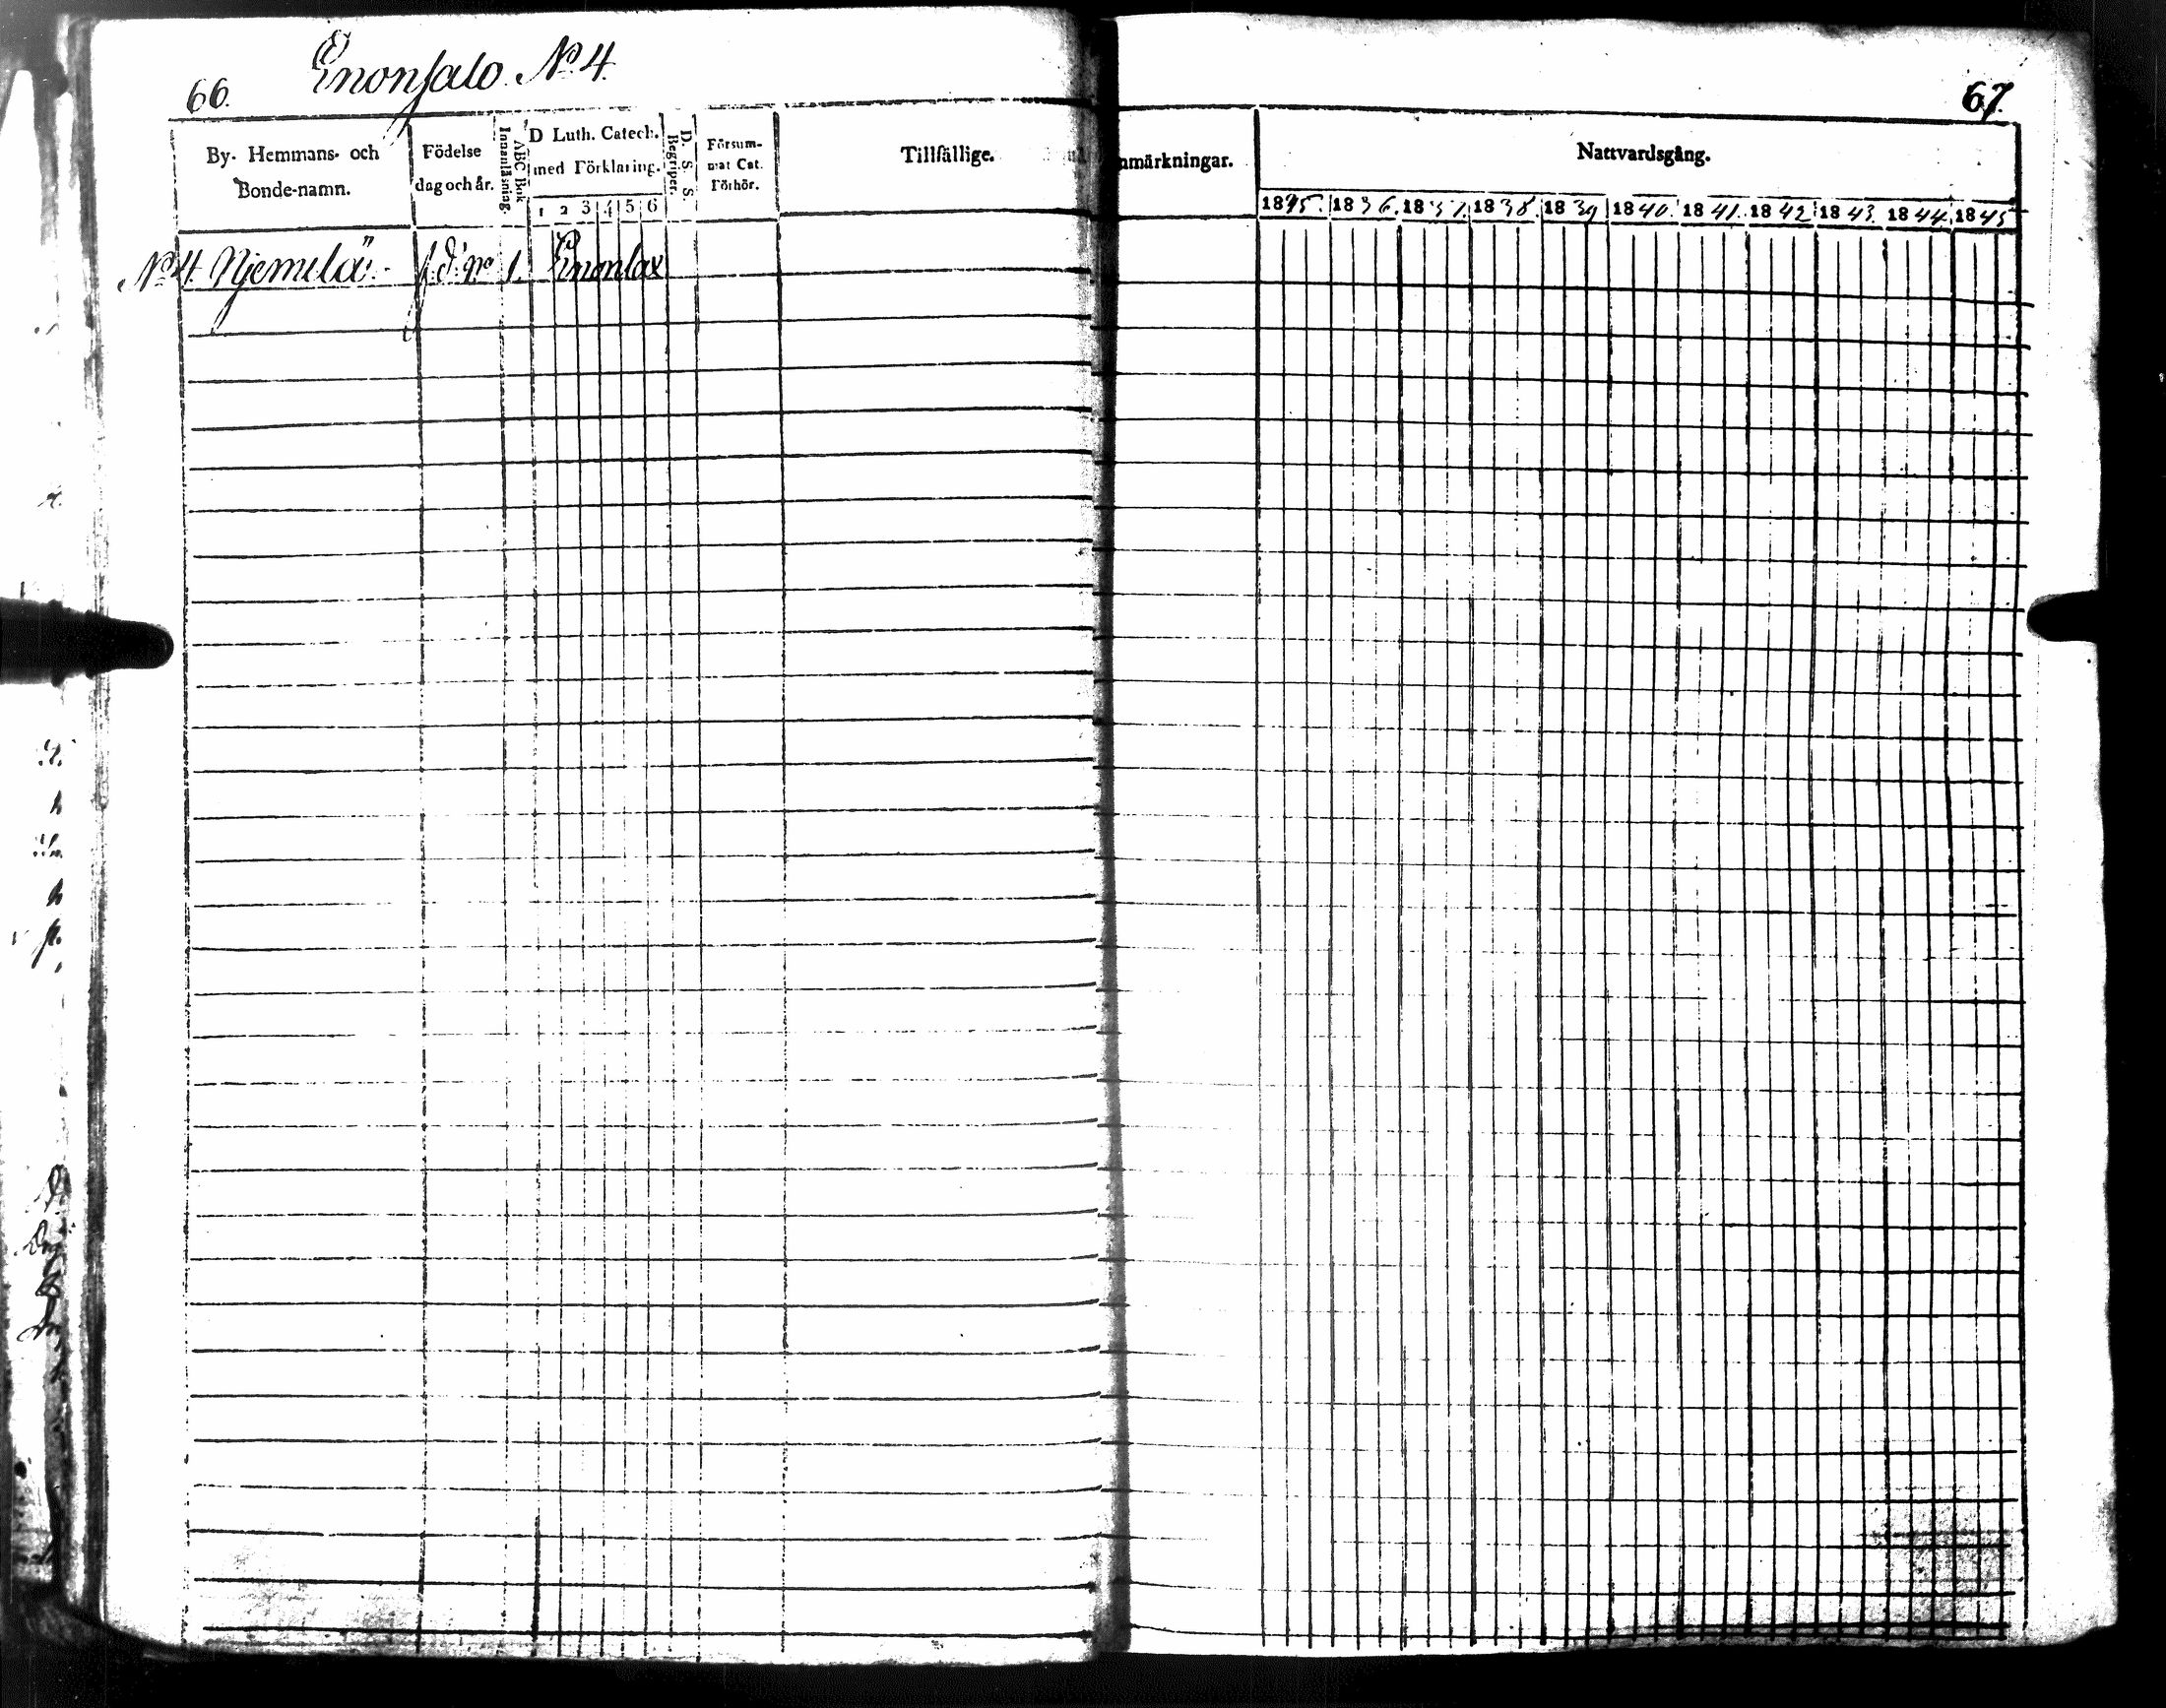 66. Enonsalo. No 4.
67.
By- Hemmans- och Bonde-namn.
Födelse dag och år.
ABC Bok Innanläsning.
D Luth. Catech. med Förklaring.
1 2 3 4 5 6
D. S. S. Begriper.
Försum- mat Cat. Förhör.
Tillfällige.
nmärkningar.
Nattvardsgång.
1835. 1836. 1837. 1838. 1839 1840. 1841. 1842. 1843. 1844. 1845
No 4. Njemelä. f. d. No 1. Enonlax